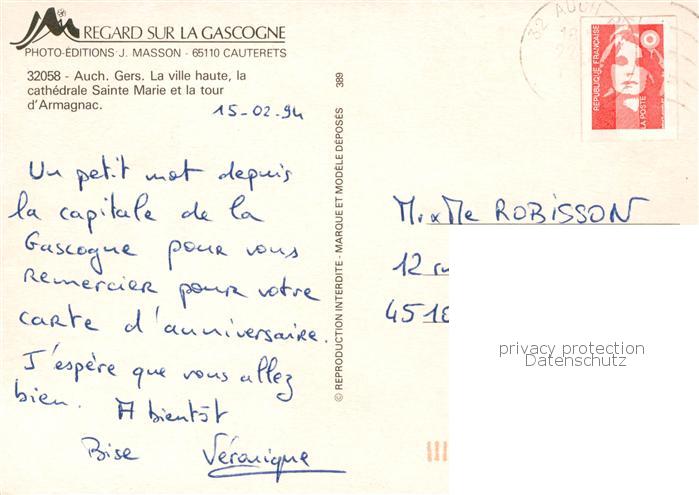 REGARD SUR LA GASCOGNE
PHOTO-ÉDITIONS · J. MASSON - 65110 CAUTERETS
32058 - Auch. Gers. La ville haute, la
cathédrale Sainte Marie et la tour
d'Armagnac.
15-02-94
Un petit mot depuis
la capitale de la
Gascogne pour vous
remercier pour votre
carte d'anniversaire.
J'espère que vous allez
bien. A bientôt
Bise Véronique
389
© REPRODUCTION INTERDITE - MARQUE ET MODÈLE DÉPOSÉS
32 AUCH
REPUBLIQUE FRANÇAISE
LA POSTE
M. x Me ROBISSON
12
4518
privacy protection
Datenschutz